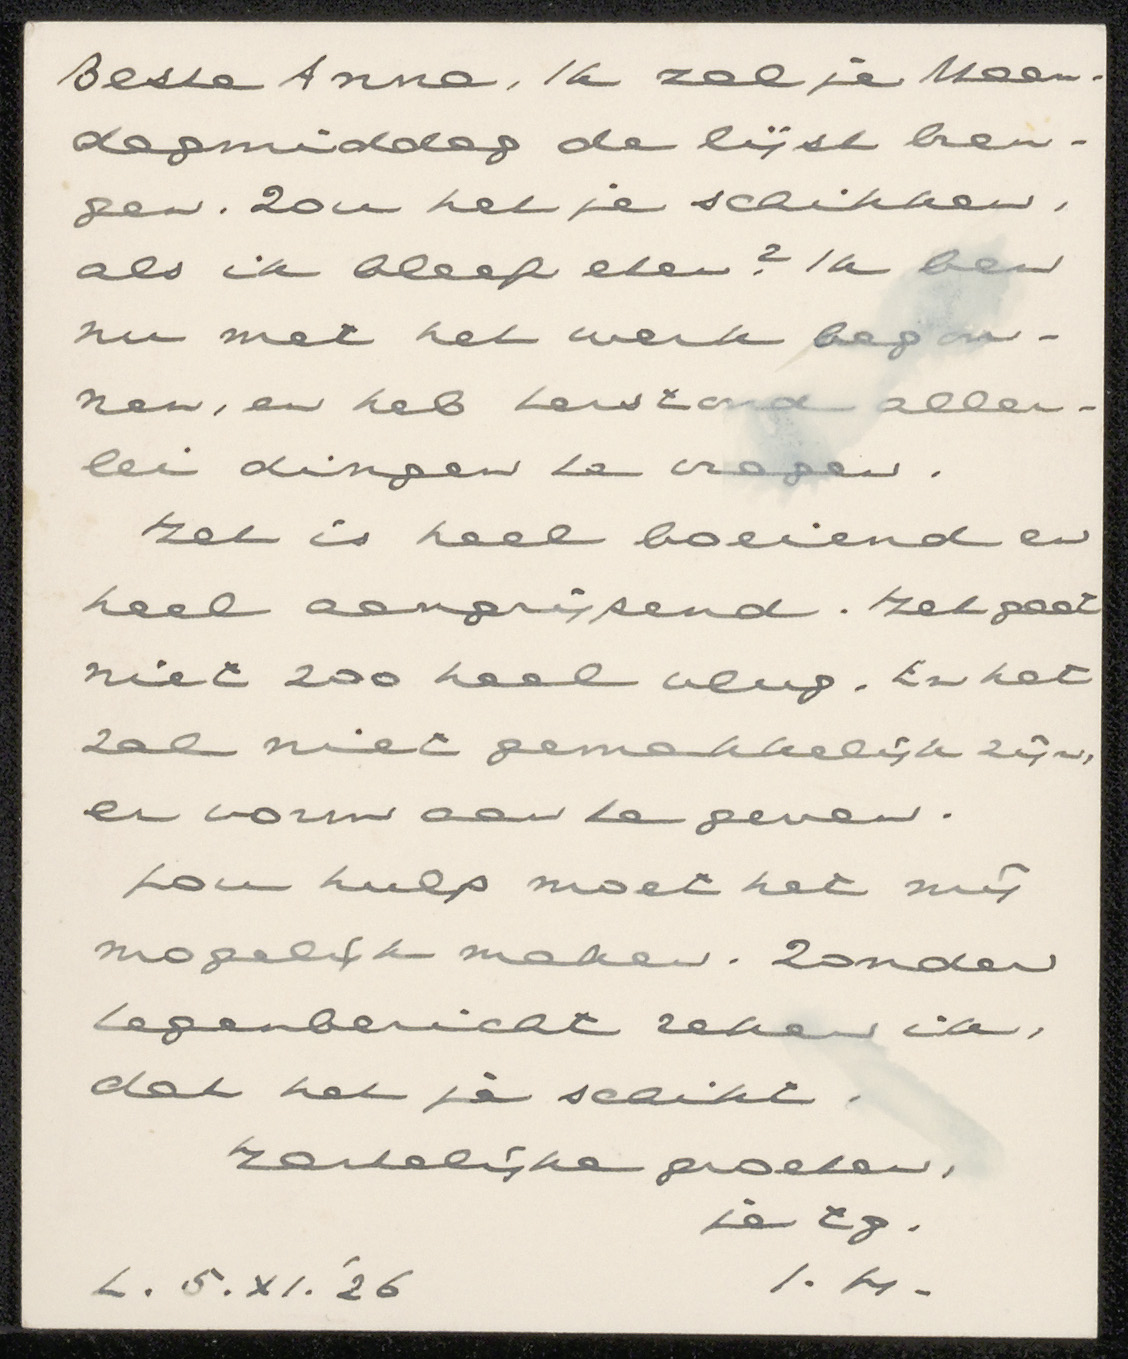 Beste Anna, Ik zal je Maan-
dagmiddag de lijst bren-
gen. Zou het je schikken,
als ik bleef eten? Ik ben
nu met het werk begon-
nen, en heb terstond aller-
lei dingen te vragen.
Het is heel boeiend en
heel aangrijpend. Het gaat
niet zoo heel vlug. En het
zal niet gemakkelijk zijn,
er vorm aan te geven.
Jou hulp moet het mij
mogelijk maken. Zonder
tegenbericht reken ik,
dat het je schikt.
Hartelijke groeten,
je tg.
L. 5. XI. '26